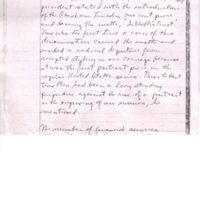 president started with the introduction
of the Abraham Lincoln one cent piece
and bearing the motto,
This was the first time a coin of this
denomination carried the motto and
marked a radical departure from
accepted styling in our coinage because
it was the first portrait piece in the
regular United States series. Prior to that
time there had been a long standing
prejudice against the use of a portrait
in the engraving of our coins, he
mentioned.
The number of financial services